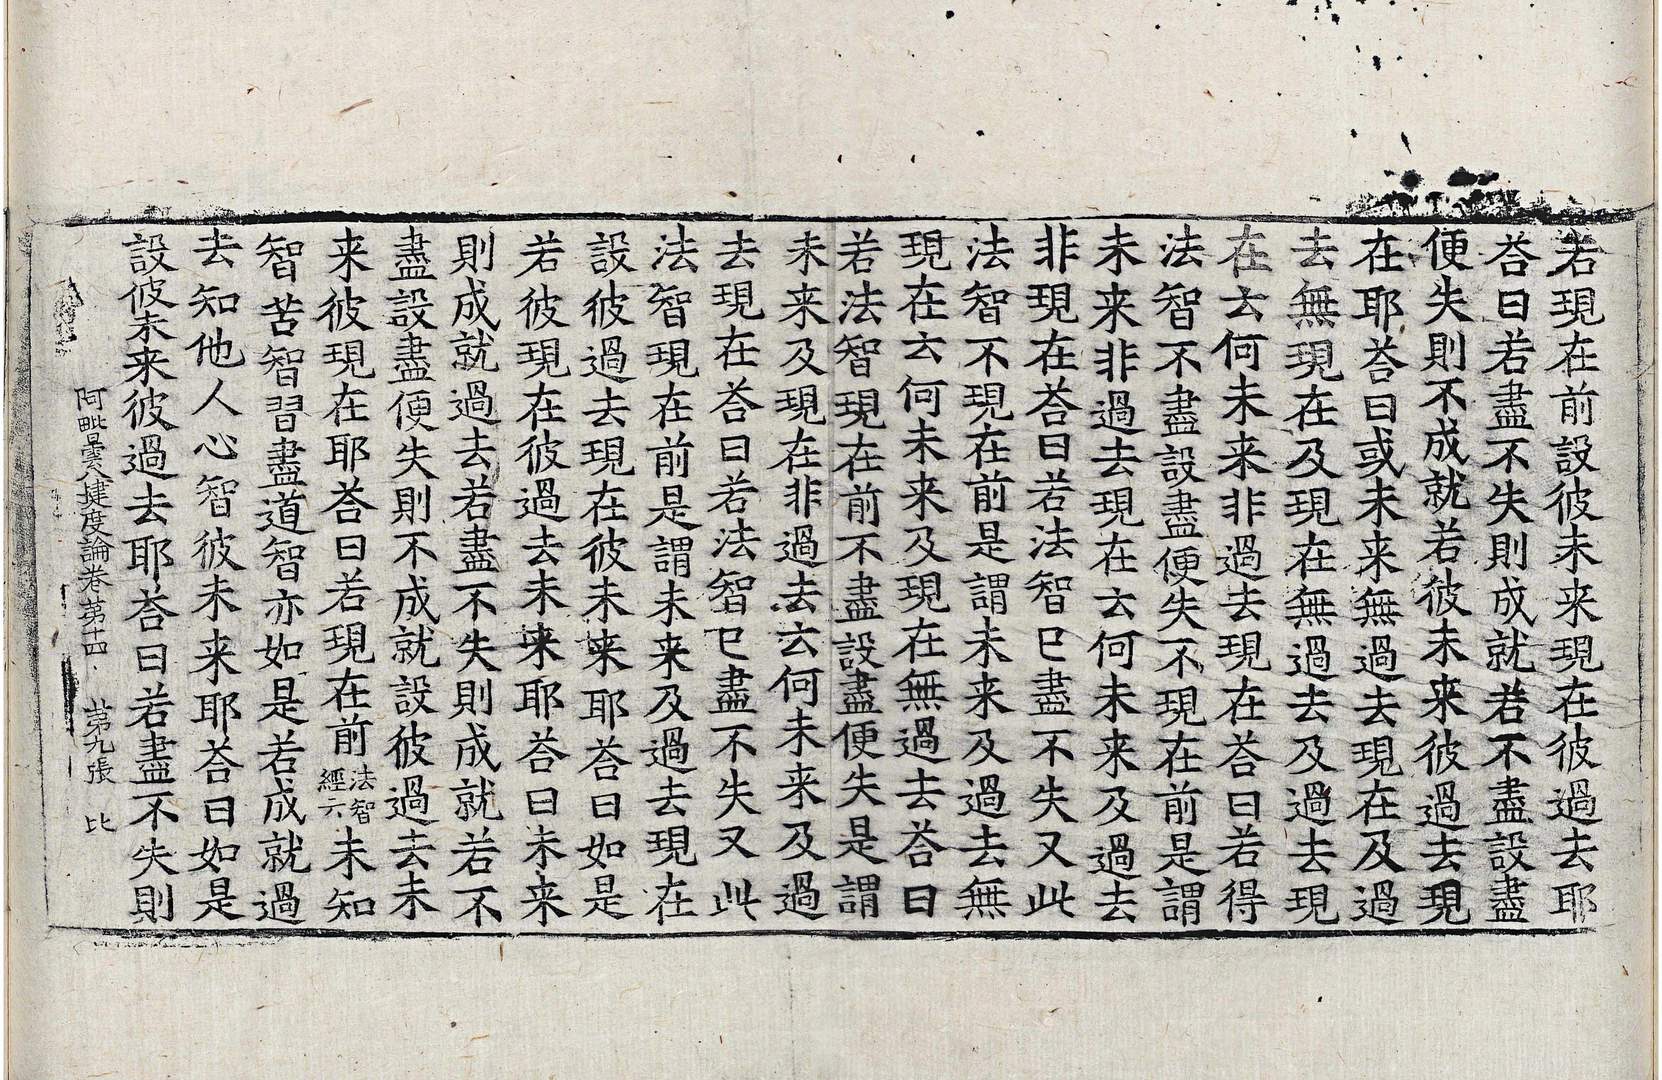 若現在前設彼未来現在彼過去耶
荅曰若盡不失則成就若不盡設盡
便失則不成就若彼未来彼過去現
在耶荅曰或未来無過去現在及過
去無現在及現在無過去及過去現
在云何未来非過去現在荅曰若得
法智不盡設盡便失不現在前是謂
未来非過去現在云何未来及過去
非現在荅曰若法智已盡不失又此
法智不現在前是謂未来及過去無
現在云何未来及現在無過去荅曰
若法智現在前不盡設盡便失是謂
未来及現在非過去云何未来及過
去現在荅曰若法智已盡不失又此
法智現在前是謂未来及過去現在
設彼過去現在彼未来耶荅曰如是
若彼現在彼過去未来耶荅曰未来
則成就過去若盡不失則成就若不
盡設盡便失則不成就設彼過去未
来彼現在耶荅曰若現在前法智經六未知
智苦智習盡道智亦如是若成就過
去知他人心智彼未来耶荅曰如是
設彼未来彼過去耶荅曰若盡不失則
阿毗曇八揵度論卷第十四 第九張 比